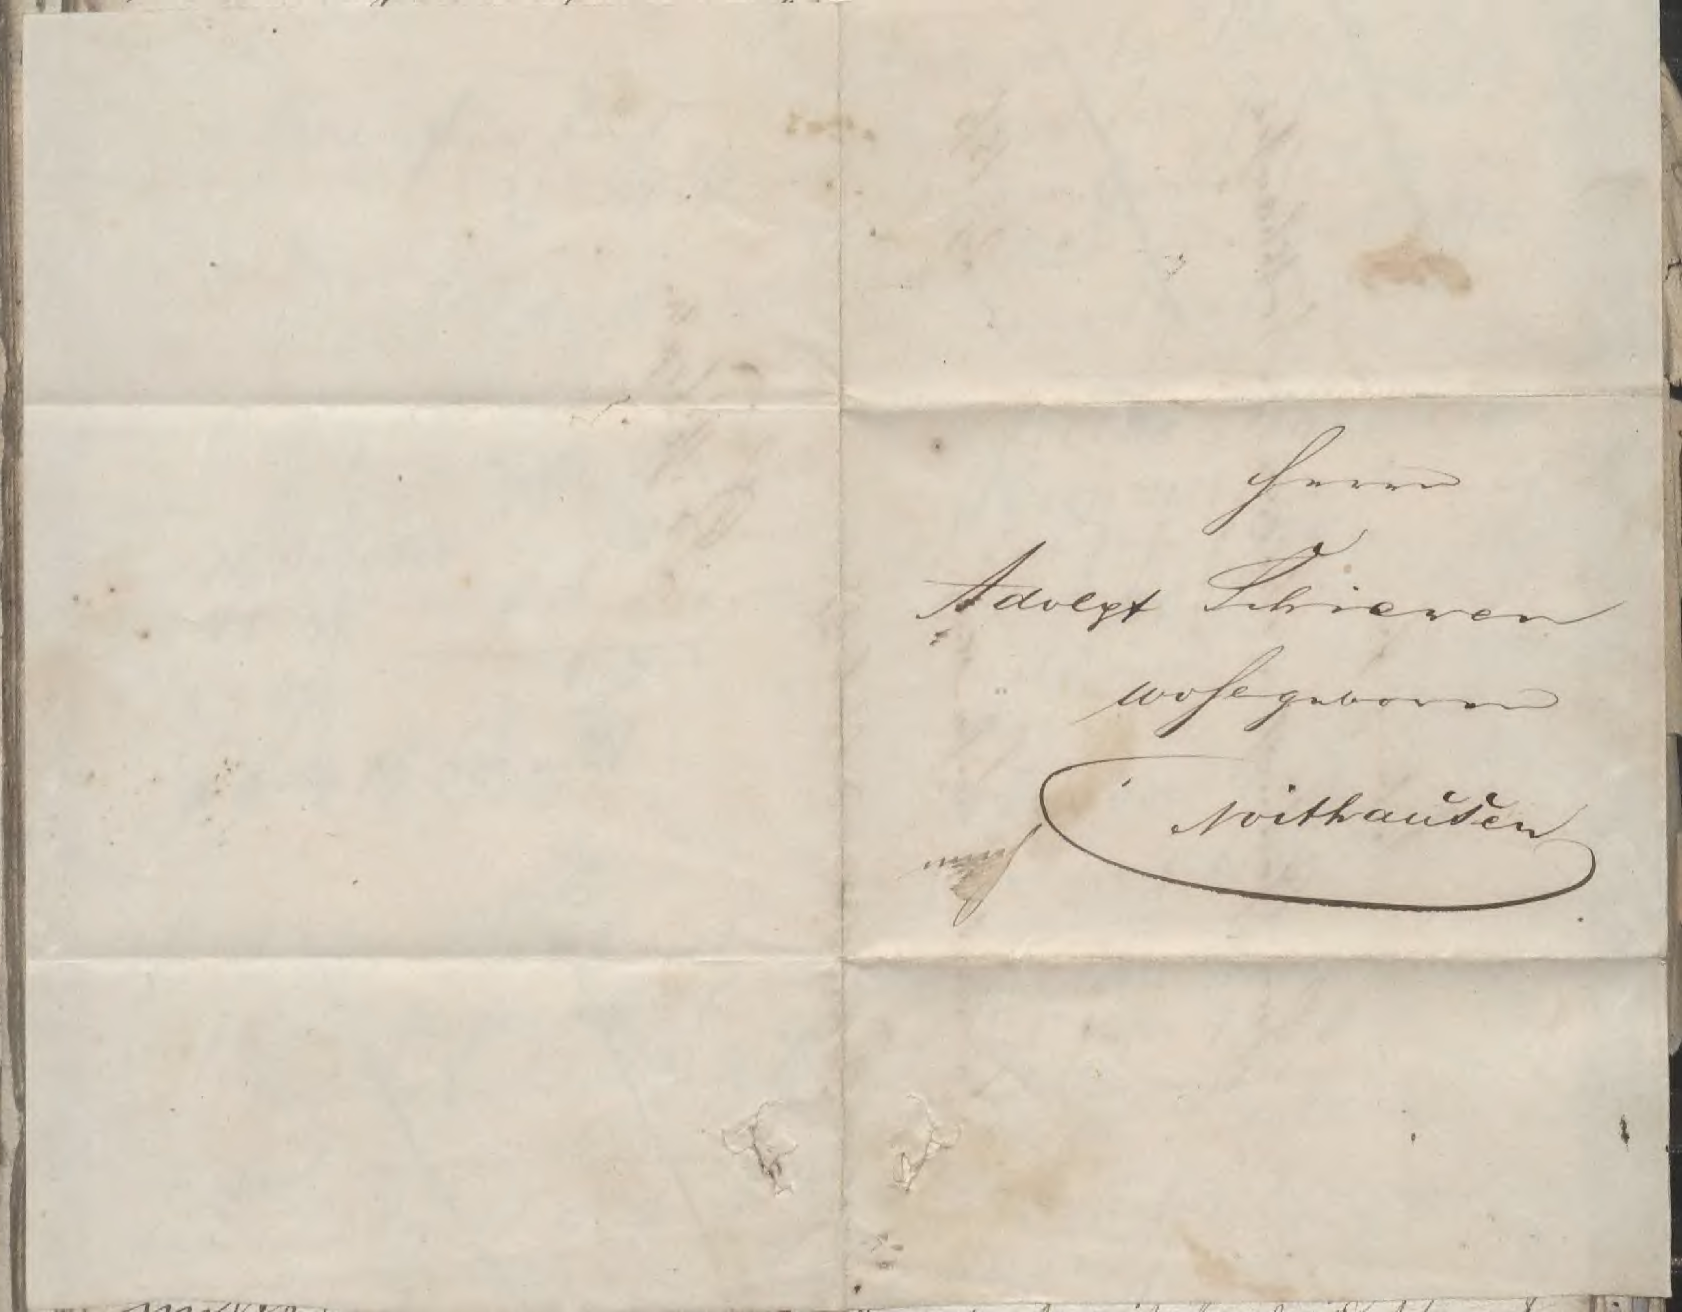 Herrn
Advcyt Schieren
wohlgeborn
Noithausen